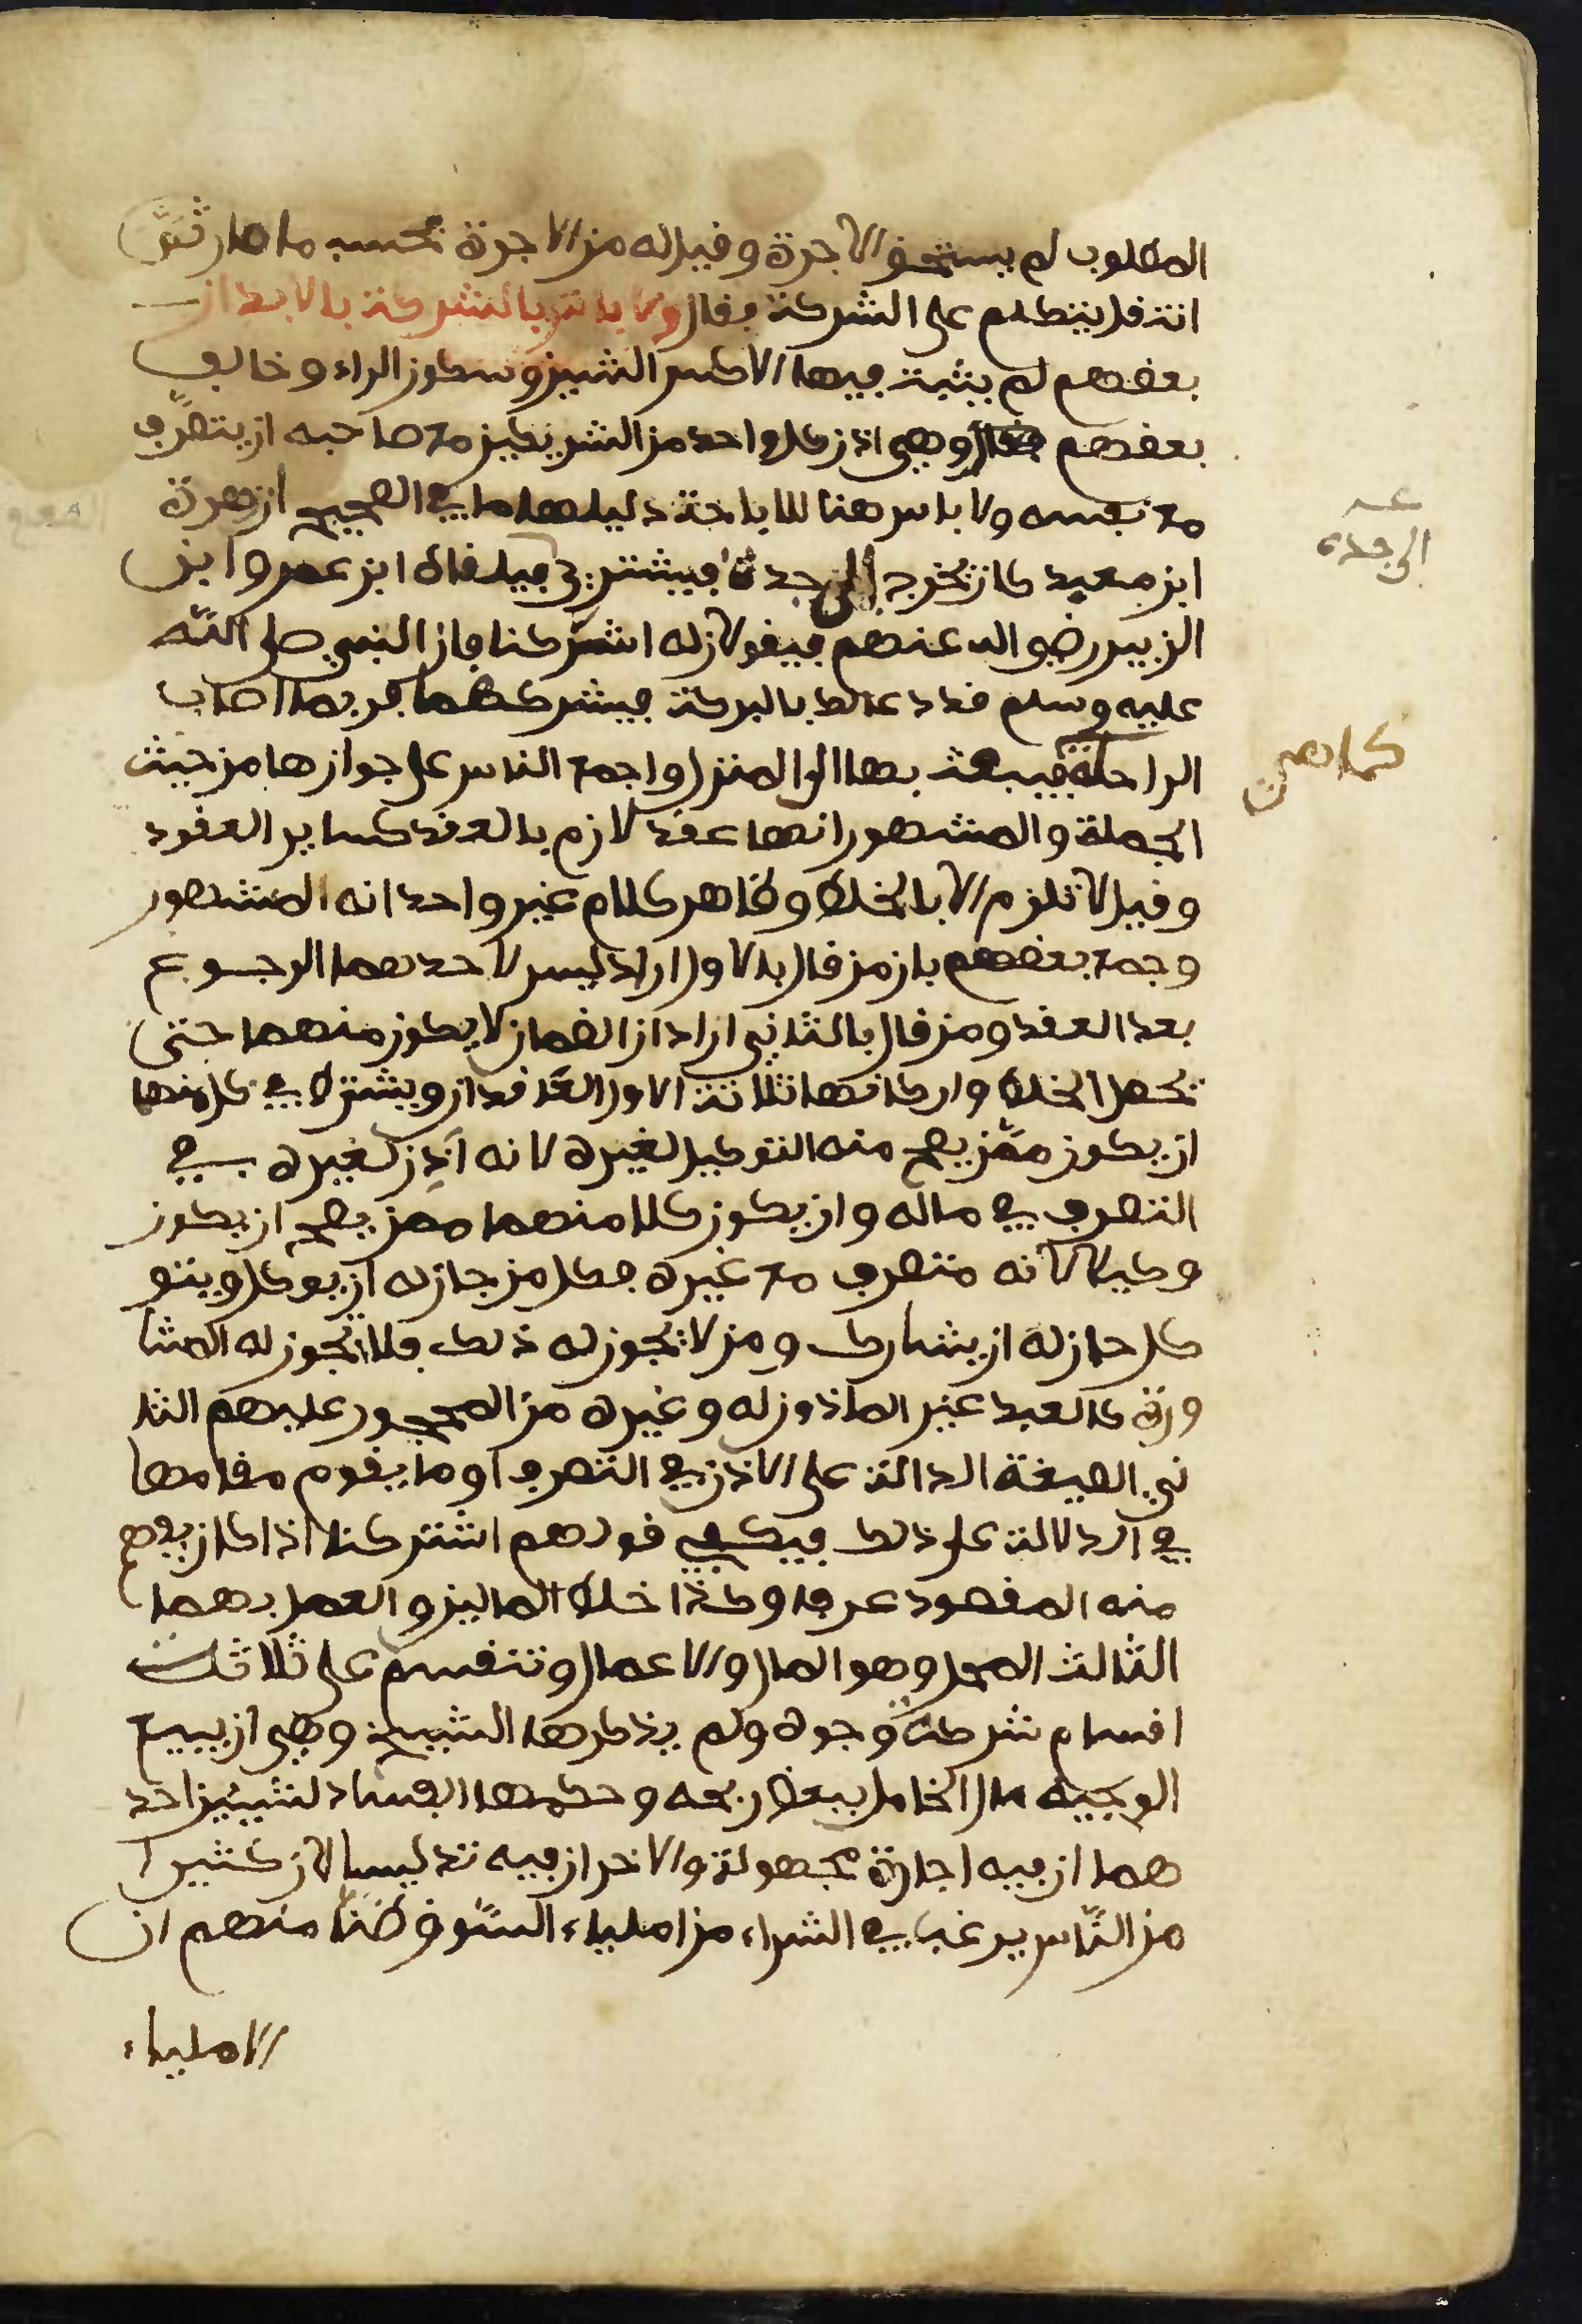 المطلوب لم يستحق الاجرة وقيل له من الاجرة بحسب ما صار ثم
انتقل يتكلم على الشركة فقال ولا باس بالشركة بالابدان
بعضهم لم يثبت فيها الا كسر الشين وسكون الراء وخالف
بعضهم وهي اذن كل واحد من الشريكين مع صاحبه ان يتصرف
مع نفسه ولا باس هنا للاباحة دليلها ما في الصحيح ان زهرة
ابن معبد كان تخرج به الى جده فيشتري فيلقاه ابن عمر وابن
الزبير رضي الله عنهم فيقولان له اشركنا فان النبي صلى الله
عليه وسلم قد دعا لك بالبركة فيشركهما فربما اصاب
الراحلة فيبعث بها الى المنزل واجمع الناس على جوازها من حيث
الجملة والمشهور انها عقد لازم بالعقد كساير العقود
وقيل لا تلزم الا بالخلط وظاهر كلام غير واحد انه المشهور
وجمع بعضهم بان من قال بالاول اراد ليس لاحدهما الرجوع
بعد العقد ومن قال بالثاني اراد ان الضمان لا يكون منهما حتى
يحصل الخلط واركانها ثلاثة الاول العاقدان ويشترط في كل منهما
ان يكون ممن يصح منه التوكيل لغيره لانه آذن لغيره في
التصرف في ماله وان يكون كلا منهما ممن يصح ان يكون
وكيلا لانه متصرف مع غيره فكل من جاز له ان يوكل ويتو
كل جاز له ان يشارك ومن لا يجوز له ذلك فلا يجوز له المشا
ورة كالعبد غير الماذون له وغيره من المحجور عليهم الثا
ني الصيغة الدالة على الاذن في التصرف او ما يقوم مقامها
في الدلالة على ذلك فيكفي قولهم اشتركنا اذا كان يفهم
منه المقصود عرفا وكذا خلط المالين والعمل بهما
الثالث المحل وهو المال والاعمال وتنقسم على ثلاثة
اقسام شركة وجوه ولم يذكرها الشيخ وهي ان يبيع
الوجيه مال الخامل ببعض ربحه وحكمها الفساد لشيئين احد
هما ان فيه اجارة مجهولة والاخر ان فيه تدليسا لان كثيرا
من الناس يرغب في الشراء من املياء السوق ظنا منهم ان
الاملياء
الى جده